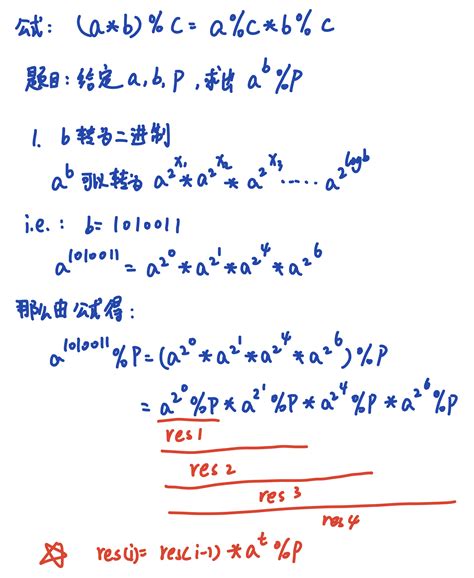 公式: (a*b)%C = a%C*b%C
题目:给定a,b,P,求出 a^b%P
1. b转为二进制
a^b 可以转为 a^{2^{x_1}}*a^{2^{x_2}}*a^{2^{x_3}}.....a^{2^{logb}}
i.e.: b=1010011
a^{1010011} = a^{2^0}*a^{2^1}*a^{2^4}*a^{2^6}
那么由公式得:
a^{1010011}%P=(a^{2^0}*a^{2^1}*a^{2^4}*a^{2^6})%P
= a^{2^0}%P*a^{2^1}%P*a^{2^4}%P*a^{2^6}%P
res1
res2
res3
res4
☆ res(i)= res(i-1)*a^t%P